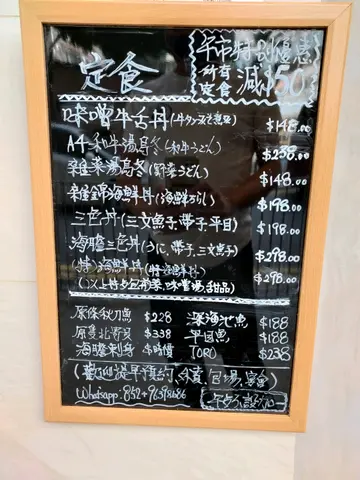 定食
午市特別優惠
所有定食 減$50
味噌牛舌丼 $148.00
A4和牛湯烏冬(和牛うどん) $238.00
野菜湯烏冬(野菜うどん) $148.00
海鮮丼 $198.00
三色丼(三文魚子,帶子,平目) $198.00
海膽三色丼(うに,帶子,三文魚子) $298.00
(特)海鮮丼(特海鮮丼) $298.00
(以上丼均包前菜,味噌湯,甜品)
原條秋刀魚 $228
深海池魚 $188
原隻北寄貝 $338
平目魚 $188
海膽刺身 $時價
TORO $238
(歡迎提早預約,會議,包場,宴會)
Whatsapp:852+